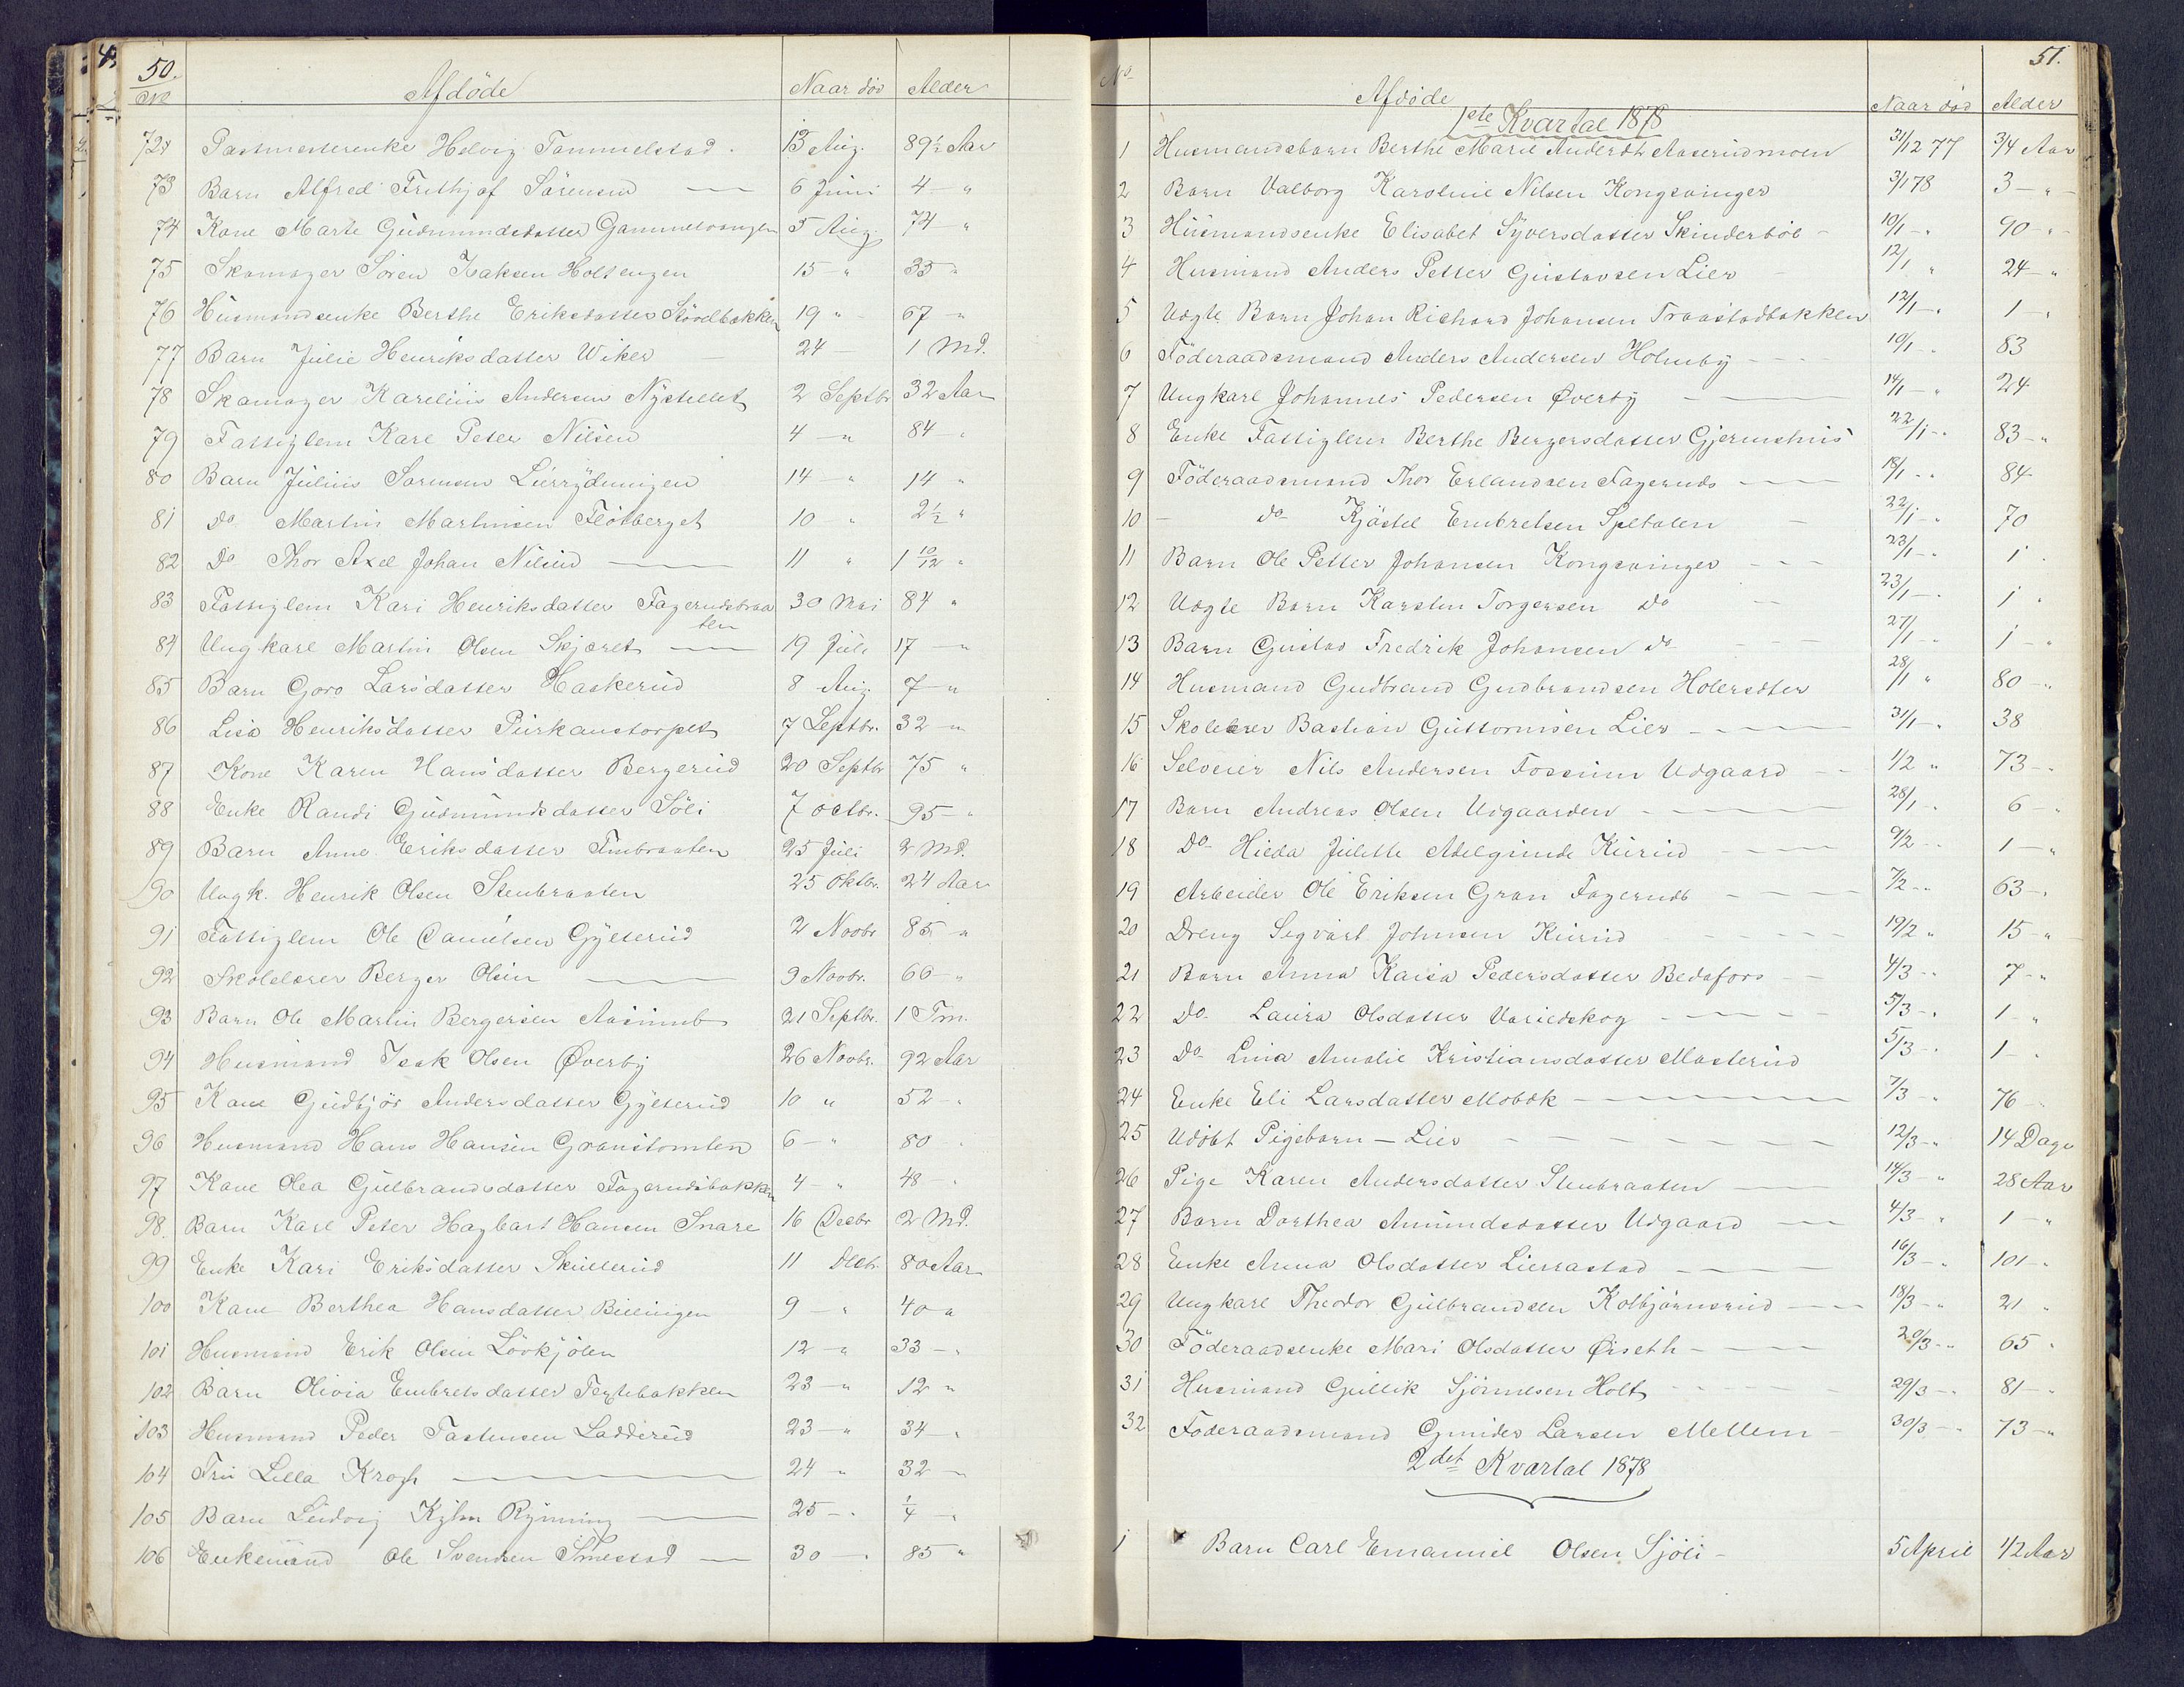 50.
No Afdöde Naar död Alder
72 Postmesterenke Helvig Tommelstad. 13 Aug. 89½ Aar
73 Barn Alfred Frithjof Sörensen — 6 Juni 4 — "
74 Kone Marte Gudmundsdatter Gammelvangen 5 Aug. 74 — "
75 Skomager Sören Isaksen Holtengen 15 — " 35 "
76 Husmandsenke Berthe Eriksdatter 19 " 67 — "
77 Barn Julie Henriksdatter Wiker 24 — 1 Md.
78 Skomager Karelius Andersen Nystellet 2 Septbr 32 Aar
79 Fattiglem Kare Peter Nilsen 4 — " 84 "
80 Barn Julius Sörensen Lierrydningen 14 — " 14 "
81 Do Martin Martinsen Flötberget 10 " 2½ "
82 Do Thor Axel Johan Nilsen — 11 " 1 10/12 "
83 Fattiglem Kari Henriksdatter Fagerudsbraaten 30 Mai 84 "
84 Ungkarl Martin Olsen Skjæret — 19 Juli 17 — "
85 Barn Goro Larsdatter Haskerud 8 Aug. 7 — "
86 Lisa Henriksdatter Purkanstorpet 7 Septbr. 32 — "
87 Kone Karen Hansdatter Bergerud 20 Septbr 75 "
88 Enke Randi Gudmundsdatter Söli 7 Octbr. 95 — "
89 Barn Anne Eriksdatter Finbraaten 25 Juli 2 Md.
90 Ungk. Henrik Olsen Stenbraaten 25 Oktbr. 24 Aar
91 Fattiglem Ole Danielsen Gylterud 2 Novbr 85 "
92 Skolelærer Berger Olsen — 9 Novbr. 60 — "
93 Barn Ole Martin Bergersen Aasumb 21 Septbr. 1 Tm.
94 Husmand Isak Olsen Överby 26 Novbr. 92 Aar
95 Kone Gudbjör Andersdatter Gylterud 10 " 52 — "
96 Husmand Hans Hansen Granstomten 6 — " 80 "
97 Kone Olea Gulbrandsdatter Fagerudsbakken 4 — " 48 "
98. Barn Karl Peter Hagbart Hansen Snare 16 Decbr 2 Md.
99 Enke Kari Eriksdatter Skullerud 11 Decbr. 80 Aar
100 Kone Berthea Hansdatter Bullingen 9 — " 40 "
101 Husmand Erik Olsen Lövkjölen 12 — " 33 — "
102 Barn Olivia Embretsdatter Teglebakken 23 — " 12 "
103 Husmand Peder Tostensen Ladderud 23 — " 34 — "
104 Fru Lilla Krogh — 24 — " 32 — "
105 Barn Ludvig Kylm Rynning — 25 — " ¼ — "
106 Enkemand Ole Svendsen Smestad — 30 — " 85 "
51.
No Afdöde Naar död Alder
1ste Kvartal 1878
1 Husmandsbarn Berthe Marie Andersdt. Aaserudmoen 31/12 77 3/4 Aar
2 Barn Valborg Karoline Nilsen Kongsvinger 3/1 78 3 — "
3 Husmandsenke Elisabet Syversdatter Skinderböl — 10/1 — " 90 — "
4 Husmand Anders Petter Gustavsen Lier — 12/1 " 24 — "
5 Uægte Barn Johan Richard Johansen Traastadbakken 12/1 — " 1 — "
6 Föderaadsmand Anders Andersen Holmby — 10/1 — " 83
7 Ungkarl Johannes Pedersen Øverby — 14/1 — " 24
8 Enke Fattiglem Berthe Bergersdatter Gjermshus 22/1 — " 83 — "
9 Föderaadsmand Thor Erlandsen Fageruds — 18/1 — " 84
10 — do Kjöstel Embretsen Spetalen — 22/1 — " 70
11 Barn Ole Petter Johansen Kongsvinger — 23/1 — " 1
12 Uægte Barn Karsten Torgersen do — 23/1 — " 1
13 Barn Gustav Fredrik Johansen do — 27/1 — " 1 — "
14 Husmand Gudbrand Gudbrandsen Holersæter 28/1 " 80 — "
15 Skolelærer Bastian Guttormsen Lier — 31/1 — " 38
16 Selveier Nils Andersen Fossum Udgaard — 1/2 " 73 — "
17 Barn Andreas Olsen Udgaarden — 28/1 — " 6 — "
18 Do Hilda Julette Adelgunde Kurud — 9/2 — " 1 — "
19 Arbeider Ole Eriksen Gran Fagerudb — 7/2 — " 63 — "
20 Dreng Segvart Johnsen Kurud — 19/2 " 15 — "
21 Barn Anna Kaisa Pedersdatter Bedafors — 4/3 — " 7 — "
22 Do Laura Olsdatter Varildskog — 5/3 — " 1 — "
23 Do Lina Amalie Kristiansdatter Masterud 5/3 — " 1 — "
24 Enke Eli Larsdatter Mobæk — 7/3 — " 76 — "
25 Udöbt Pigebarn — Lier — 12/3 — " 14 Dage
26 Pige Karen Andersdatter Stenbraaten — 14/3 — " 28 Aar
27 Barn Dorthea Amundsdatter Udgaard — 4/3 — " 1 — "
28 Enke Anna Olsdatter Lierrastad — 16/3 — " 101 — "
29 Ungkarl Theodor Gulbrandsen Kolbjörnsrud — 18/3 — " 21 "
30 Föderaadsenke Mari Olsdatter Øiseth — 20/3 — " 65 "
31 Husmand Gullik Sjönnesen Holt — 29/3 — " 81 — "
32 Föderaadsmand Gunder Larsen Mellem — 30/3 — " 73 — "
2det Kvartal 1878
1 Barn Carl Emanuel Olsen Sjöli — 5 April 1/2 Aar